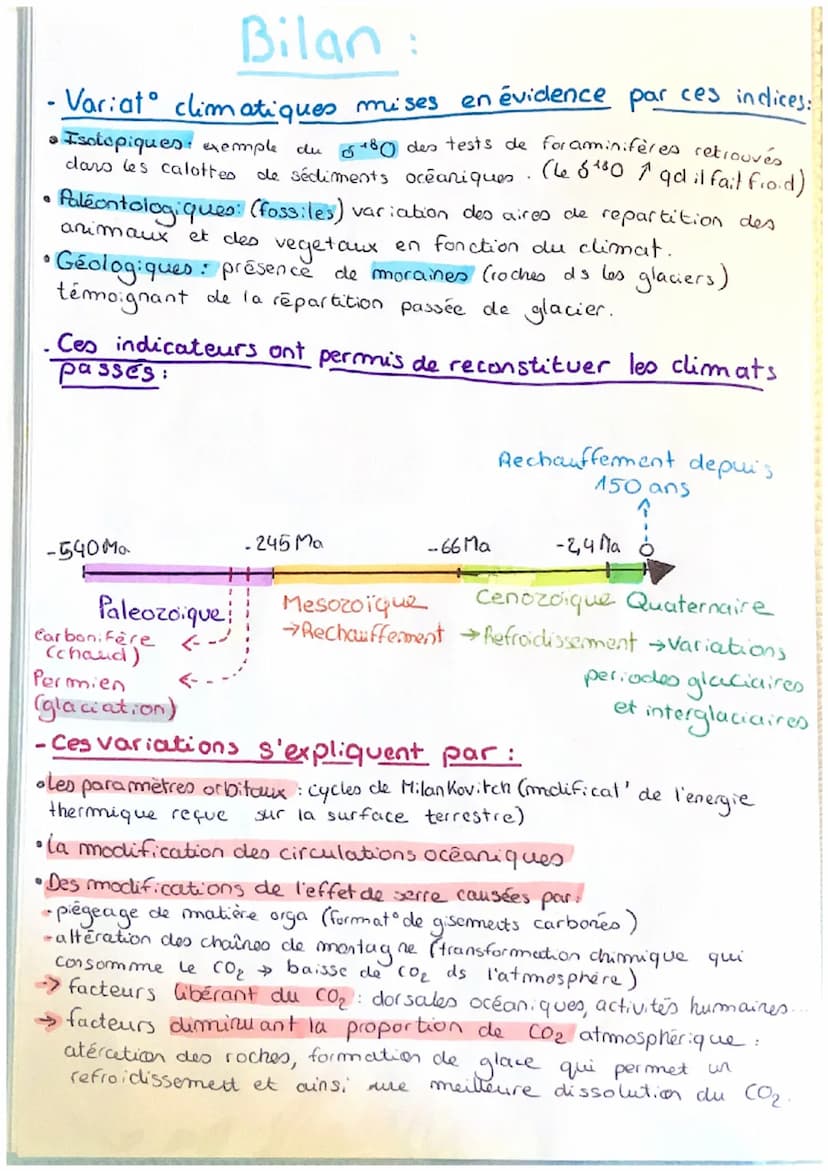 Bilan :
- Variat° climatiques mises en évidence par ces indices:
• Isotopiques: exemple du δ18O des tests de foraminifères retrouvés
dans les calottes de sédiments océaniques. (le δ18O ↑ qd il fait froid)
• Paléontologiques: (fossiles) variation des aires de repartition des
animaux et des vegetaux en fonction du climat.
• Géologiques : présence de moraines (roches ds les glaciers)
témoignant de la répartition passée de glacier.
- Ces indicateurs ont permis de reconstituer les climats
passés :
Rechauffement depuis
150 ans
-540 Ma -245 Ma -66 Ma -2,4 Ma 0
Paleozoïque Mesozoïque Cenozoïque Quaternaire
Carbonifère ← → Rechauffement → Refroidissement → Variations
(chaud)
Permien ← periodes glaciaires
(glaciation) et interglaciaires
- Ces variations s'expliquent par :
• Les paramètres orbitaux : cycles de Milankovitch (modificat' de l'energie
thermique reçue sur la surface terrestre)
• La modification des circulations océaniques
• Des modifications de l'effet de serre causées par:
- piégeage de matière orga (format° de gisements carbonés)
- altération des chaînes de montagne (transformation chimique qui
consomme le CO2 → baisse de CO2 ds l'atmosphère)
→ facteurs libérant du CO2 : dorsales océaniques, activités humaines...
→ facteurs diminuant la proportion de CO2 atmosphérique :
atération des roches, formation de glace qui permet un
refroidissement et ainsi une meilleure dissolution du CO2.